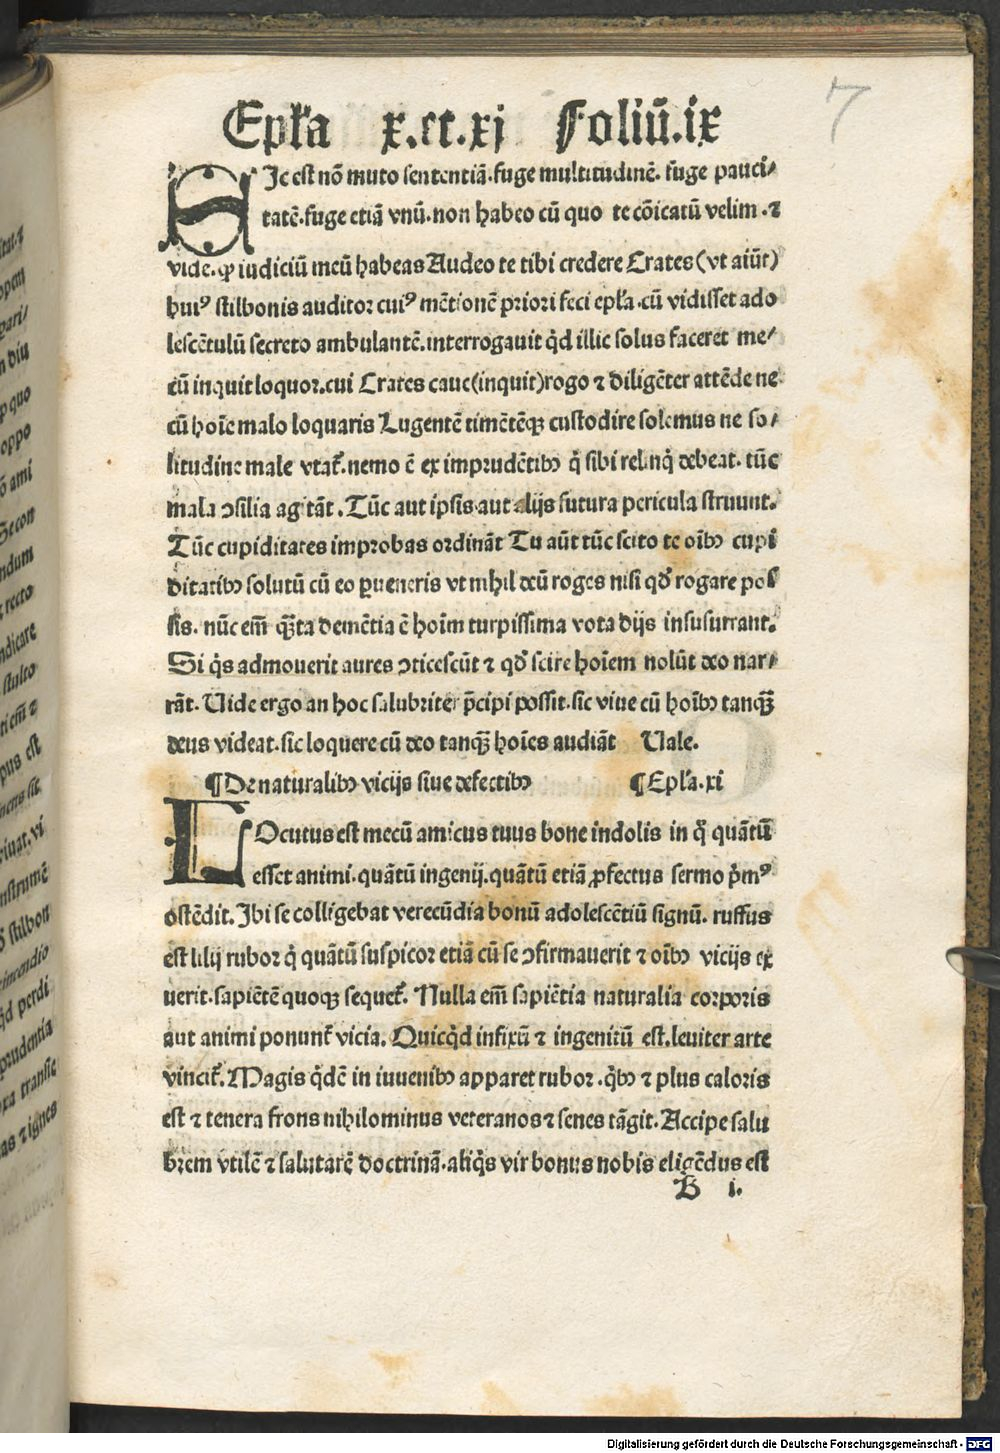 7
Epl̃a x.et.xj Foliū.ix
SJc est nō muto sententiā.fuge multitudinē. fuge pauci⸗
tatē.fuge etiā vnū.non habeo cū quo te cōicatū velim.⁊
vide.ꝙ iudiciū meū habeas Audeo te tibi credere Crates(vt aiūt)
huiꝰ stilbonis auditor cuiꝰ mētionē priori feci epl̃a.cū vidisset ado
lescētulū secreto ambulantē.interrogauit qͥd illic solus faceret me⸗
cū inquit loquor.cui Crates caue(inquit)rogo ⁊ diligēter attēde ne
cū hoīe malo loquaris Lugentē timētēqꝫ custodire solemus ne so⸗
litudine male vtat᷑.nemo ē ex imprudētibꝰ qͥ sibi relinqͥ debeat. tūc
mala ↄsilia agitāt. Tūc aut ipsis aut alijs futura pericula struunt.
Tūc cupiditates improbas ordināt Tu aūt tūc scito te oībꝰ cupi
ditatibꝰ solutū cū eo ꝑueneris vt nihil deū roges nisi qd̓ rogare pos
sis. nūc em̄ qͣ̄ta demētia ē hoīm turpissima vota dijs insusurrant.
Si qͥs admouerit aures ↄticescūt ⁊ qd̓ scire hoīem nolūt deo nar⸗
rāt. Uide ergo an hoc salubriter p̄cipi possit.sic viue cū hoībꝰ tanqͣ̄
deus videat.sic loquere cū deo tanqͣ̄ hoīes audiāt Uale.
¶De naturalibꝰ vicijs siue defectibꝰ ¶Epl̃a.xi
LOcutus est mecū amicus tuus bone indolis in qͦ quātū
esset animi.quātū ingenij.quātū etiā ꝓfectus sermo pͥmꝰ
ostēdit. Jbi se colligebat verecūdia bonū adolescētiū signū. ruffus
est lilij rubor qͥ quātū suspicor etiā cū se ↄfirmauerit ⁊ oībꝰ vicijs ex
uerit.sapiētē quoqꝫ sequet᷑. Nulla em̄ sapiētia naturalia corporis
aut animi ponunt᷑ vicia. Quicqͥd infixū ⁊ ingenitū est.leuiter arte
vincit᷑. Magis qͥdē in iuuenibꝰ apparet rubor.qͥbꝰ ⁊ plus caloris
est ⁊ tenera frons nihilominus veteranos ⁊ senes tāgit. Accipe salu
brem vtilē ⁊ salutarē doctrinā.aliqͥs vir bonus nobis eligēdus est
B i.
Digitalisierung gefördert durch die Deutsche Forschungsgemeinschaft - DFG